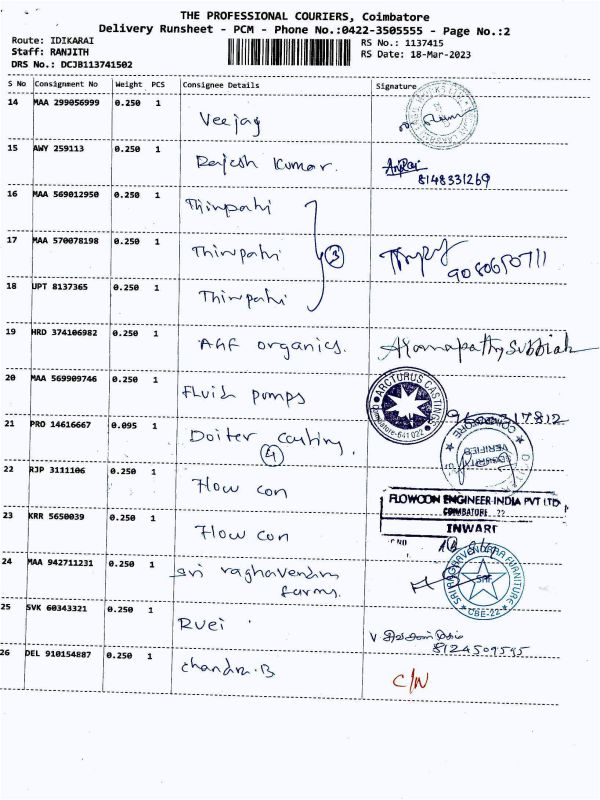 THE PROFESSIONAL COURIERS, Coimbatore
Delivery Runsheet - PCM - Phone No.:0422-3505555 - Page No.:2
Route: IDIKARAI
RS No.: 1137415
Staff: RANJITH
RS Date: 18-Mar-2023
DRS No.: DCJB113741502
S No Consignment No Weight PCS Consignee Details Signature
14 MAA 299056999 0.250 1 Veejay
15 AWY 259113 0.250 1 Rajesh Kumar.
8148331269
16 MAA 569012950 0.250 1 Thirupathi
17 MAA 570078198 0.250 1 Thirupathi 3
9080650711
18 UPT 8137365 0.250 1 Thirupathi
19 HRD 374106982 0.250 1 AGF organics.
20 MAA 569909746 0.250 1 Fluid pumps
ARCTURUS CASTINGS
Coimbatore-641 022
21 PRO 14616667 0.095 1 Doiter casting.
4
COIMBATORE
VERIFIED
22 RJP 3111106 0.250 1 Flow con
FLOWCON ENGINEER INDIA PVT LTD
COIMBATORE
INWARD
23 KRR 5650039 0.250 1 Flow con
24 MAA 942711231 0.250 1 Sri raghavendra
farms.
SRI RAGHAVENDRA FURNITURE
SRF
CBE-22
25 SVK 60343321 0.250 1 Rvei
8124509595
26 DEL 910154887 0.250 1 chandra.B C/N